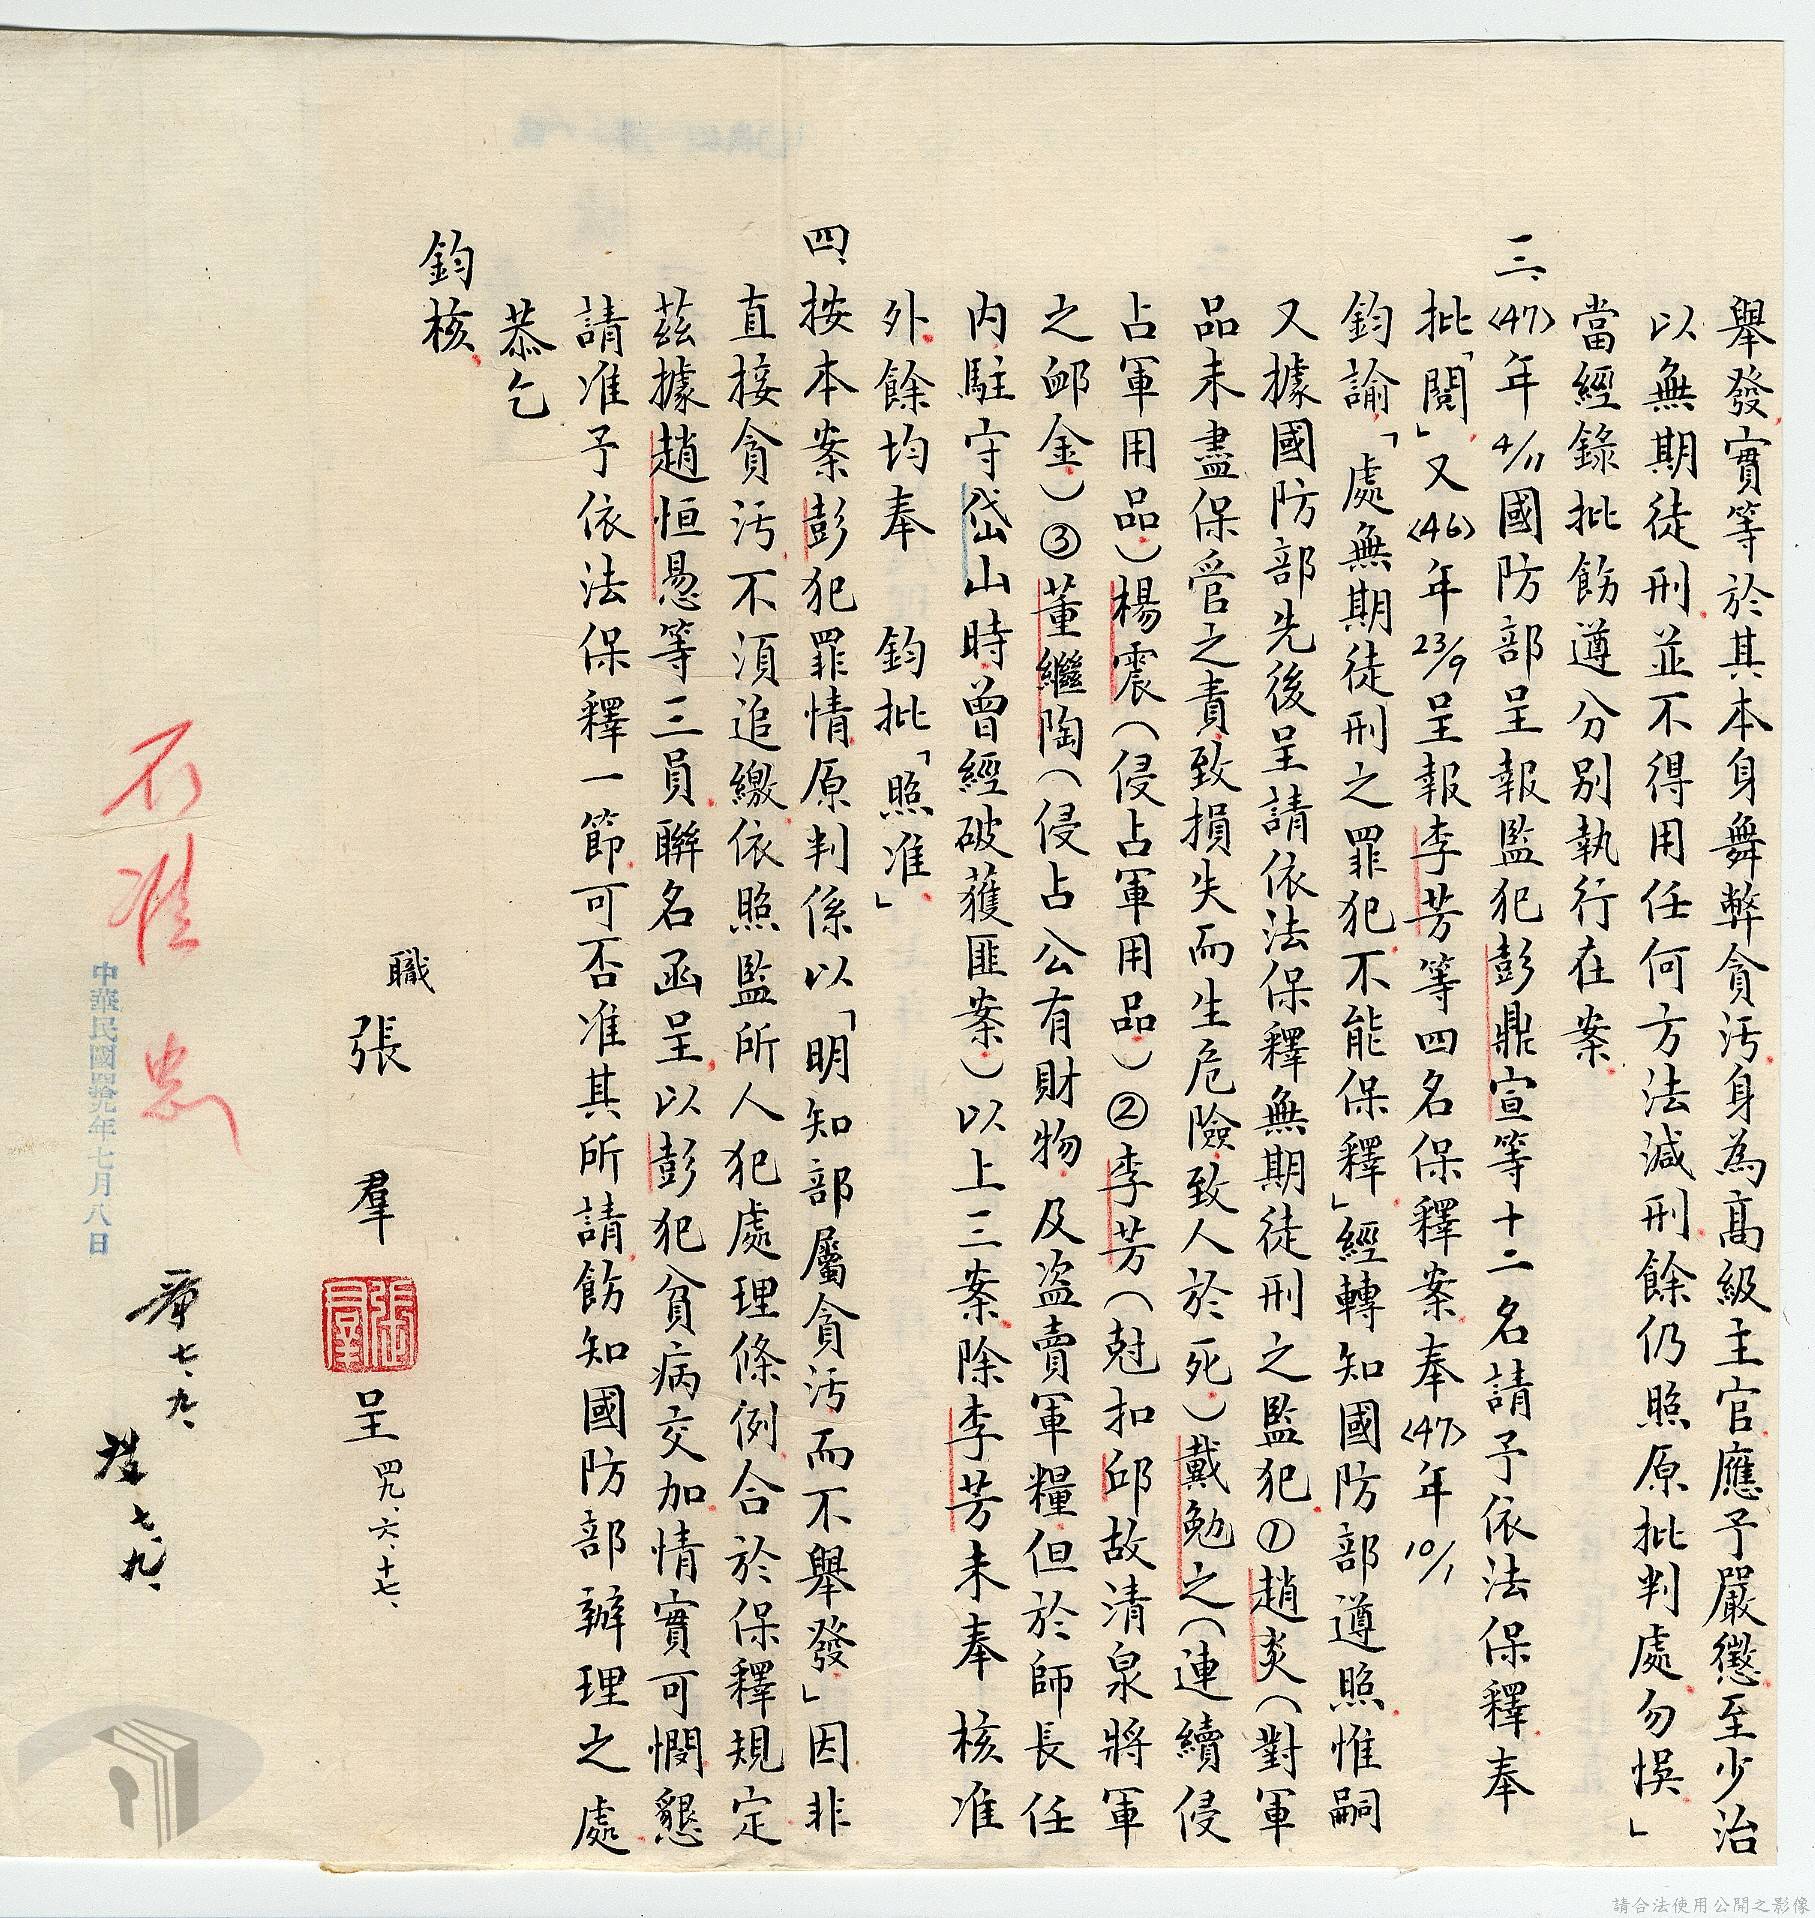 舉發，實等於其本身舞弊貪污，身為高級主官，應予嚴懲，至少治
以無期徒刑，並不得用任何方法減刑，餘仍照原批判處，勿悞」
當經錄批飭遵分別執行在案。
三、〈47〉年4/11國防部呈報監犯彭鼎宣等十二名請予依法保釋，奉
批「閱」，又〈46〉年23/9呈報李芳等四名保釋案，奉〈47〉年10/1
鈞諭，「處無期徒刑之罪犯，不能保釋」經轉知國防部遵照，惟嗣
又據國防部先後呈請依法保釋無期徒刑之監犯，①趙炎（對軍
品未盡保管之責，致損失而生危險，致人於死，）戴勉之（連續侵
占軍用品，）楊震（侵占軍用品，）②李芳（尅扣邱故清泉將軍
之卹金，）③董繼陶（侵占公有財物，及盜賣軍糧，但於師長任
內駐守岱山時，曾經破獲匪案，）以上三案，除李芳未奉 核准
外，餘均奉 鈞批「照准，」
四、按本案彭犯罪情，原判係以「明知部屬貪污，而不舉發，」因非
直接貪污，不須追繳，依照監所人犯處理條例，合於保釋規定，
茲據趙恒惖等三員，聯名函呈，以彭犯貧病交加，情實可憫，懇
請准予依法保釋一節，可否准其所請，飭知國防部辦理之處，
恭乞
鈞核。
職 張 羣 張羣 呈 四九、六、十七、
不准 
中華民國四拾九年七月八日
七、九、
七、九、
請合法使用公開之影像